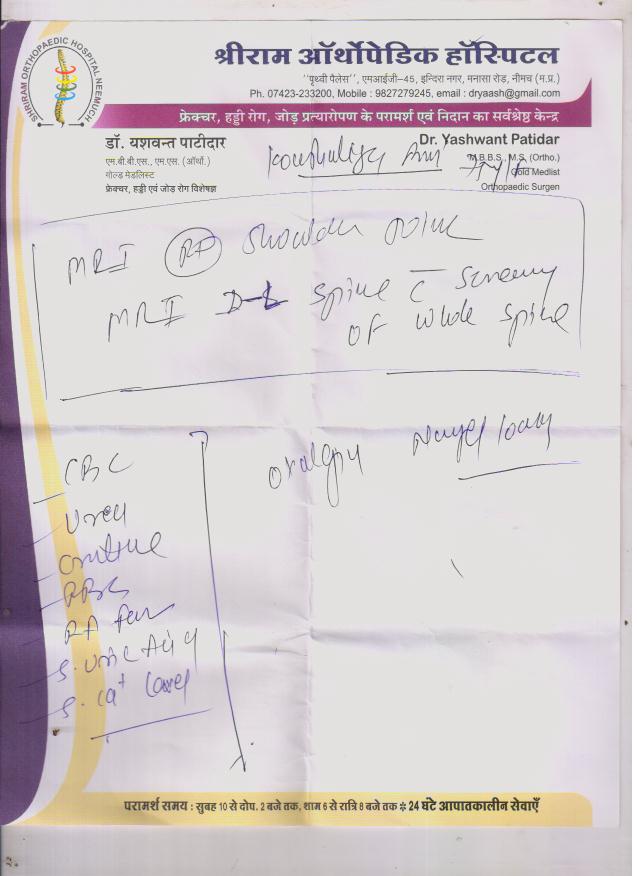 SHRIRAM ORTHOPAEDIC HOSPITAL NEEMUCH
श्रीराम ऑर्थोपेडिक हॉस्पिटल
"पृथ्वी पैलेस", एमआईजी-45, इन्दिरा नगर, मनासा रोड, नीमच (म.प्र.)
Ph. 07423-233200, Mobile : 9827279245, email : dryaash@gmail.com
फ्रेक्चर, हड्डी रोग, जोड़ प्रत्यारोपण के परामर्श एवं निदान का सर्वश्रेष्ठ केन्द्र
डॉ. यशवन्त पाटीदार
एम.बी.बी.एस., एम.एस. (ऑर्थो.)
गोल्ड मेडलिस्ट
फ्रेक्चर, हड्डी एवं जोड़ रोग विशेषज्ञ
Dr. Yashwant Patidar
M.B.B.S., M.S. (Ortho.)
Gold Medlist
Orthopaedic Surgen
MRI Rt Shoulder Joint
MRI D-L Spine c̅ Screening
of whole spine
CBC
Urea
RBS
S. Uric Acid
परामर्श समय : सुबह 10 से दोप. 2 बजे तक, शाम 6 से रात्रि 8 बजे तक ❉ 24 घंटे आपातकालीन सेवाएँ